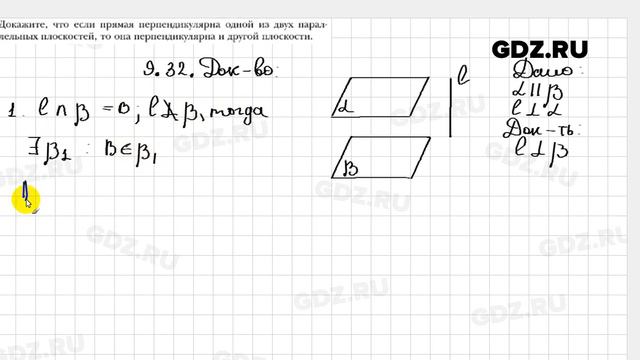 Докажите, что если прямая перпендикулярна одной из двух парал-
лельных плоскостей, то она перпендикулярна и другой плоскости.
GDZ.RU
9.32. Док-во:
Дано:
α || β
l ⊥ α
Док-ть:
l ⊥ β
1. l ∩ β = B; l ⊥̸ β, тогда
∃ β₁ : B ∈ β₁
α
β
l
GDZ.RU
GDZ.RU
GDZ.RU
GDZ.RU
GDZ.RU
GDZ.RU
GDZ.RU
GDZ.RU